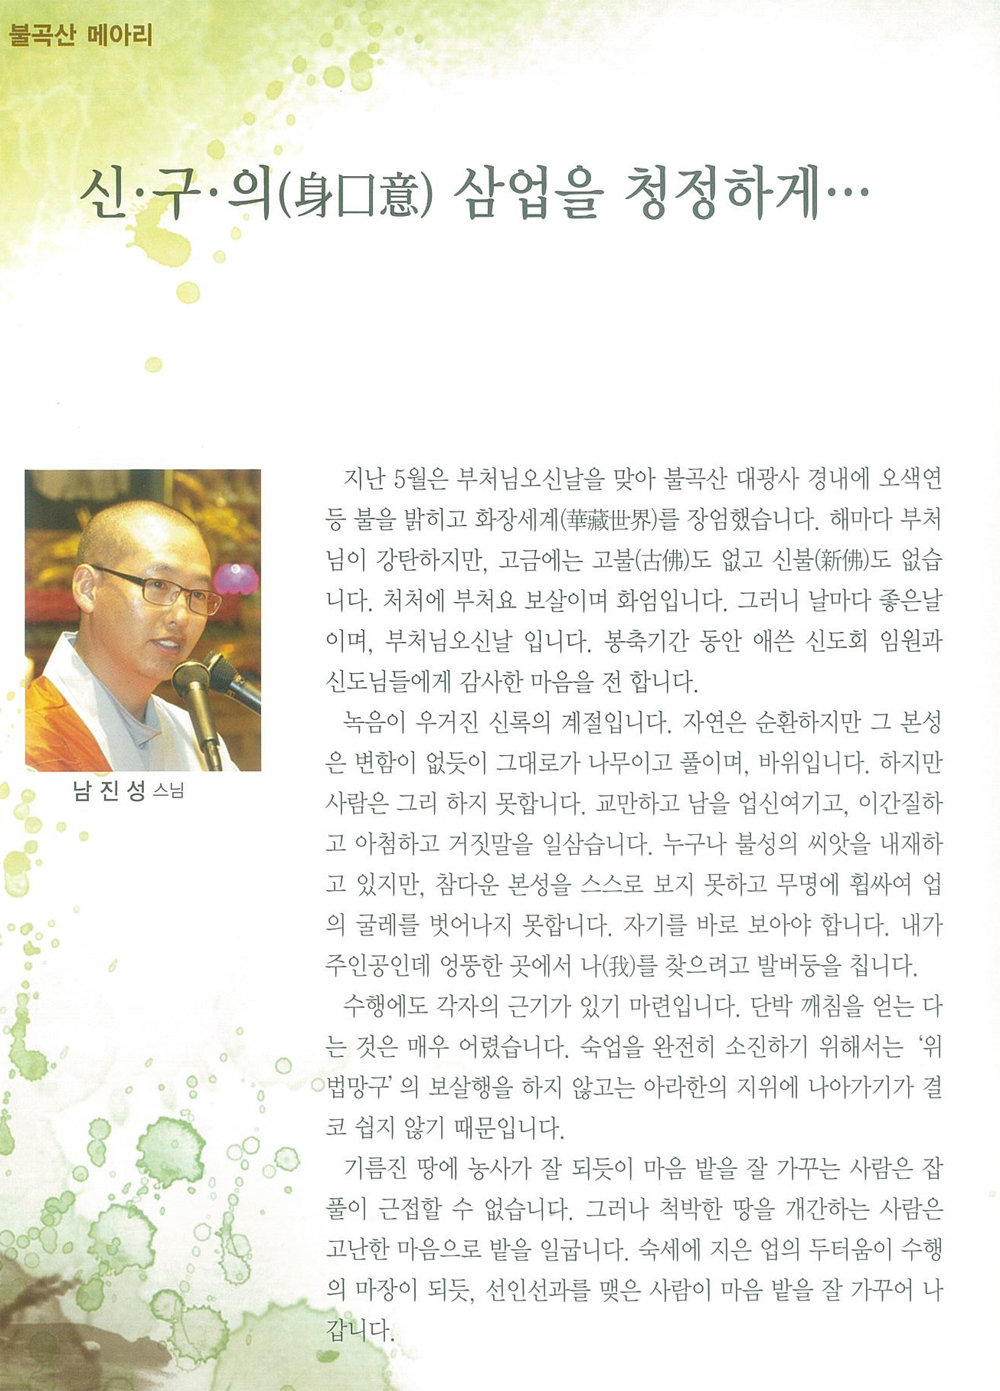 불곡산 메아리
신·구·의(身口意) 삼업을 청정하게…
지난 5월은 부처님오신날을 맞아 불곡산 대광사 경내에 오색연
등 불을 밝히고 화장세계(華藏世界)를 장엄했습니다. 해마다 부처
님이 강탄하지만, 고금에는 고불(古佛)도 없고 신불(新佛)도 없습
니다. 처처에 부처요 보살이며 화엄입니다. 그러니 날마다 좋은날
이며, 부처님오신날 입니다. 봉축기간 동안 애쓴 신도회 임원과
신도님들에게 감사한 마음을 전 합니다.
녹음이 우거진 신록의 계절입니다. 자연은 순환하지만 그 본성
은 변함이 없듯이 그대로가 나무이고 풀이며, 바위입니다. 하지만
사람은 그리 하지 못합니다. 교만하고 남을 업신여기고, 이간질하
고 아첨하고 거짓말을 일삼습니다. 누구나 불성의 씨앗을 내재하
고 있지만, 참다운 본성을 스스로 보지 못하고 무명에 휩싸여 업
의 굴레를 벗어나지 못합니다. 자기를 바로 보아야 합니다. 내가
주인공인데 엉뚱한 곳에서 나(我)를 찾으려고 발버둥을 칩니다.
수행에도 각자의 근기가 있기 마련입니다. 단박 깨침을 얻는 다
는 것은 매우 어렸습니다. 숙업을 완전히 소진하기 위해서는 ‘위
법망구’의 보살행을 하지 않고는 아라한의 지위에 나아가기가 결
코 쉽지 않기 때문입니다.
기름진 땅에 농사가 잘 되듯이 마음 밭을 잘 가꾸는 사람은 잡
풀이 근접할 수 없습니다. 그러나 척박한 땅을 개간하는 사람은
고난한 마음으로 밭을 일굽니다. 숙세에 지은 업의 두터움이 수행
의 마장이 되듯, 선인선과를 맺은 사람이 마음 밭을 잘 가꾸어 나
갑니다.
남진성 스님